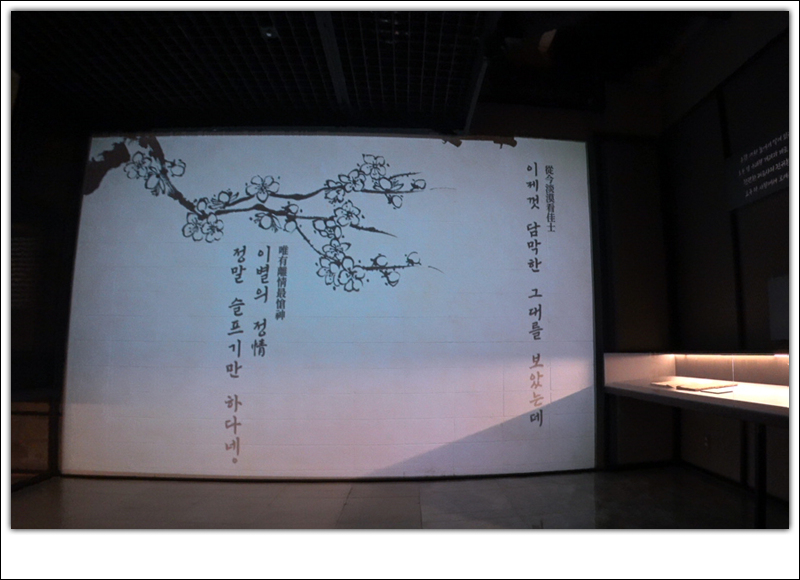 從今淡漠看佳士
이제껏 담막한 그대를 보았는데
唯有離情最愴神
이별의 정情
정말 슬프기만 하다네.